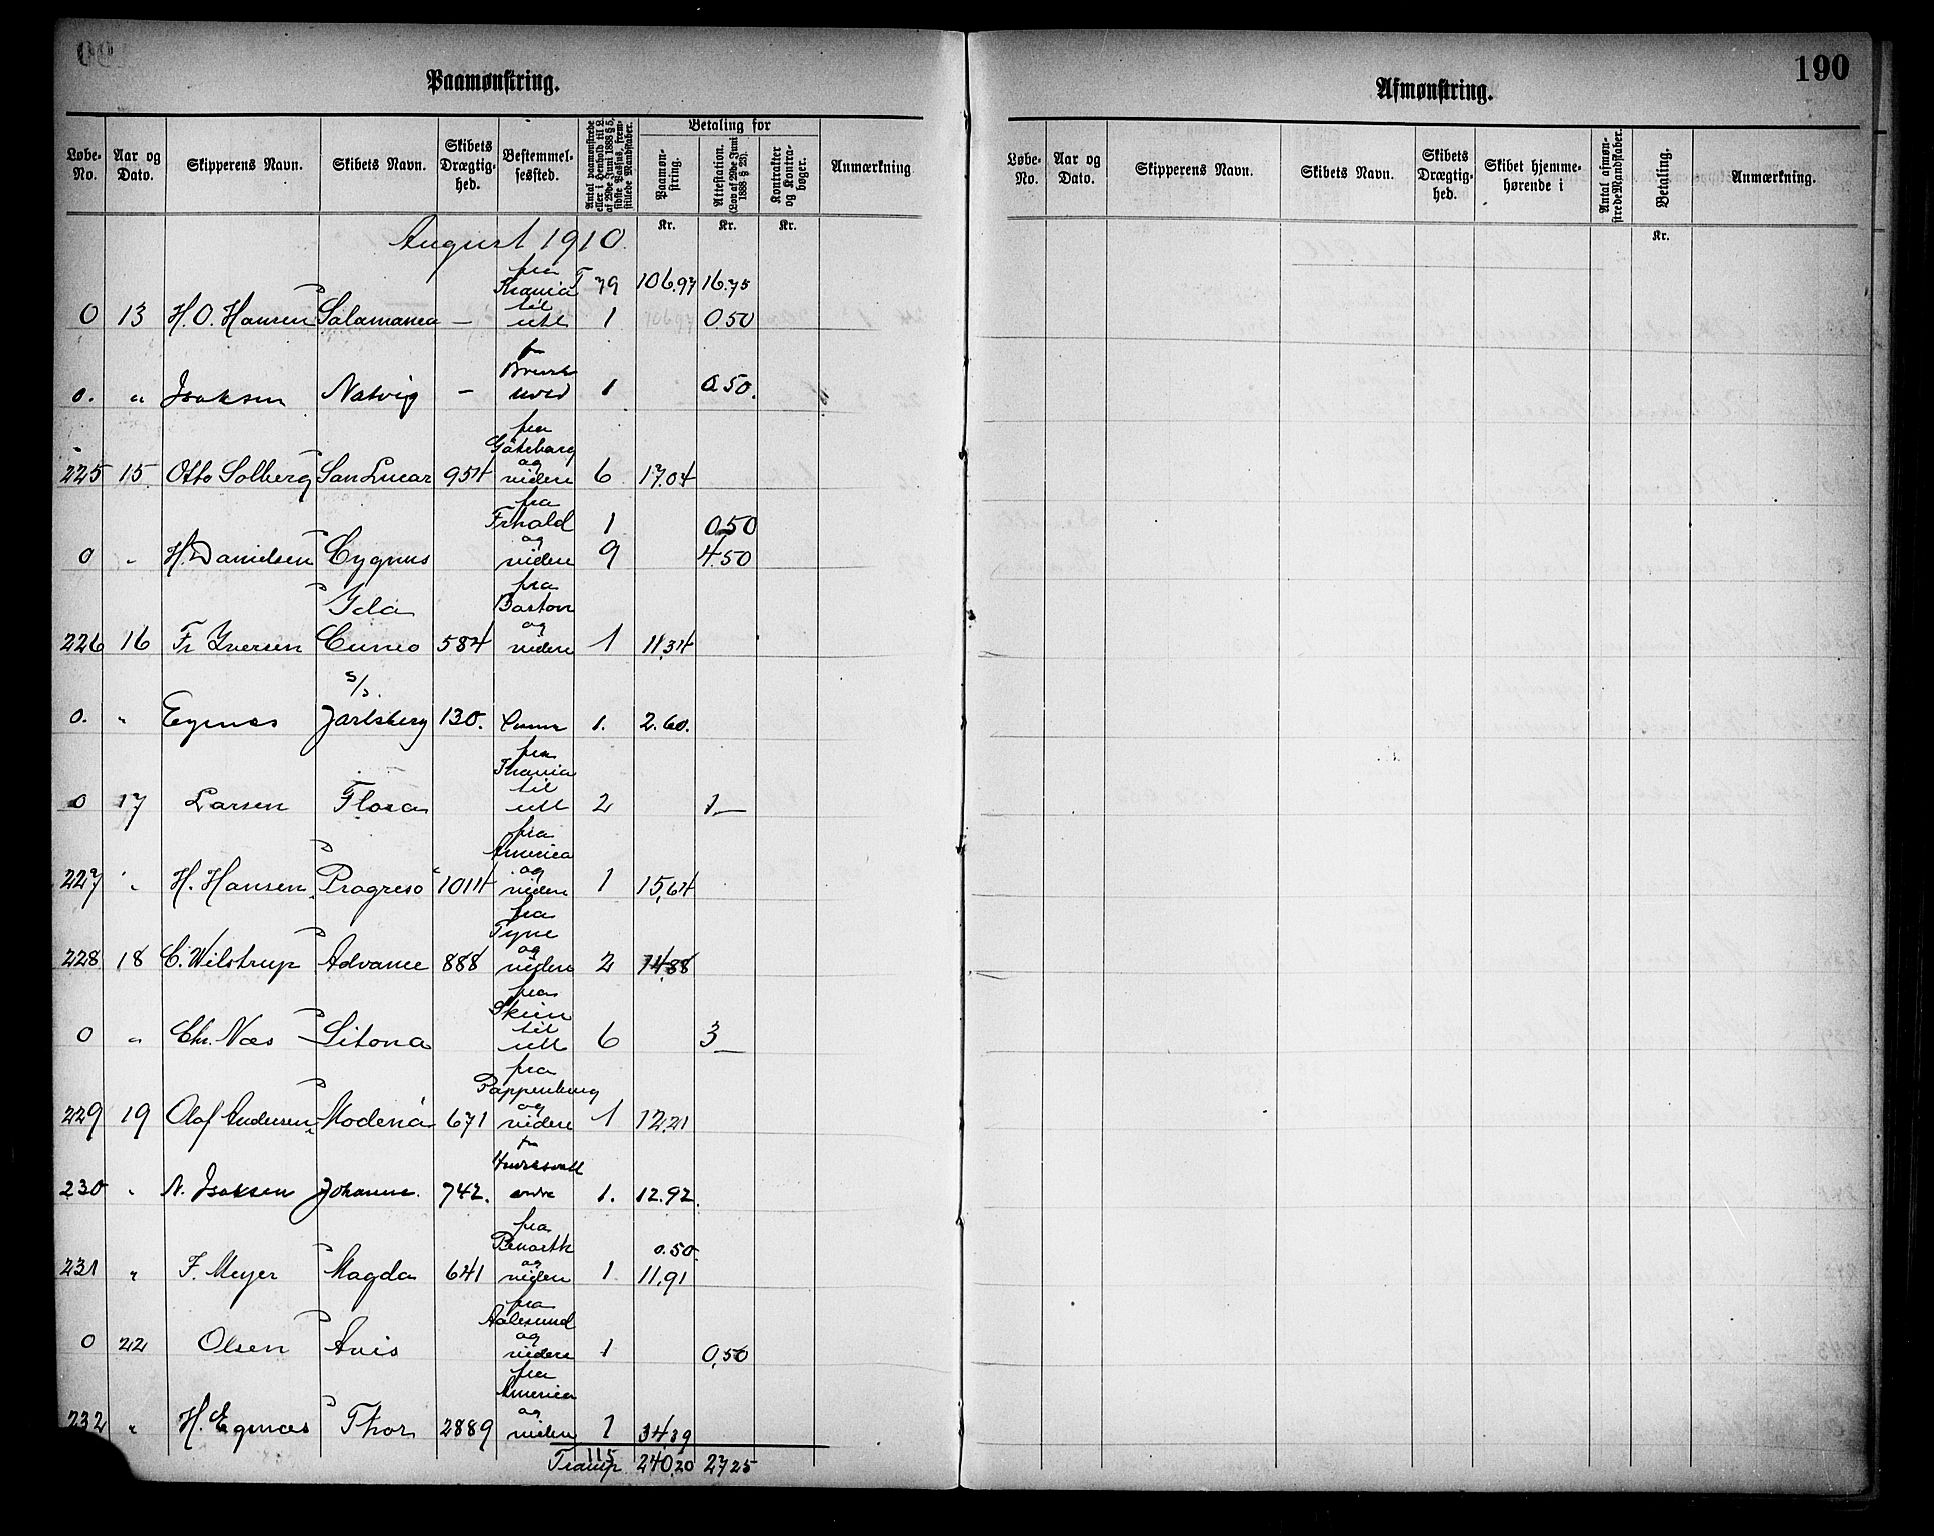 190
Paamønstring.
Løbe-No. Aar og Dato. Skipperens Navn. Skibets Navn. Skibets Drægtig-hed. Bestemmel-sessted. Antal paamønstrede eller i Henhold til L. af 29de Juni 1888 § 5, sidste Passus, frem-stillede Mandskaber. Betaling for Paamøn-string. Attestation. (Lov af 29de Juni 1888 § 23). Kontrakter og Kontra-bøger. Anmærkning
Kr. Kr. Kr.
August 1910.
fra
Krania T 79 106.97 16.75
til
0 13 H. O. Hansen Salamanca — utl 1 0.50
fr
0. " Isaksen Natvig — 1 0.50.
fra
Göteborg
og
225 15 Otto Solberg San Lucar 954 videre 6 17.04
fra
Frhald 1 0.50
og
0 " H. Danielsen Cygnus videre 9 4.50
fra
Ida Boston
og
226 16 Fr Iversen Cuneo 584 videre 1 11,34
s/s.
0. " Egenes Jarlsberg 130. 1. 2.60.
fra
Krania
til
0 17 Larsen Flora utl 2 1.—
fra
America
og
227 " H. Hansen Progreso 1014 videre 1 15,64
fra
Tyne
og
228 18 C. Wilstrup Advance 888 videre 2 14,88
fra
Skien
til
0 " Chr. Næs Sitona utl 6 3—
fra
Pappenburg
og
229 19 Olof Andersen Modena 671 videre 1 12,21
fr
230 " N. Isaksen Johanne. 742. 1. 12.92.
fra
0.50.
og
231 " F. Meyer Magda 641 videre 1 11,91
fra
Aalesund
og
0 22 Olsen Avis videre 1 0,50
fra
America
og
232 " H. Egenæs Thor 2889 videre 1 34,39
115
Transp 240,20 27 25
Afmønstring.
Løbe-No. Aar og Dato. Skipperens Navn. Skibets Navn. Skibets Drægtig-hed. Skibet hjemme-hørende i Antal afmøn-strede Mandskaber. Betaling. Anmærkning.
Kr.